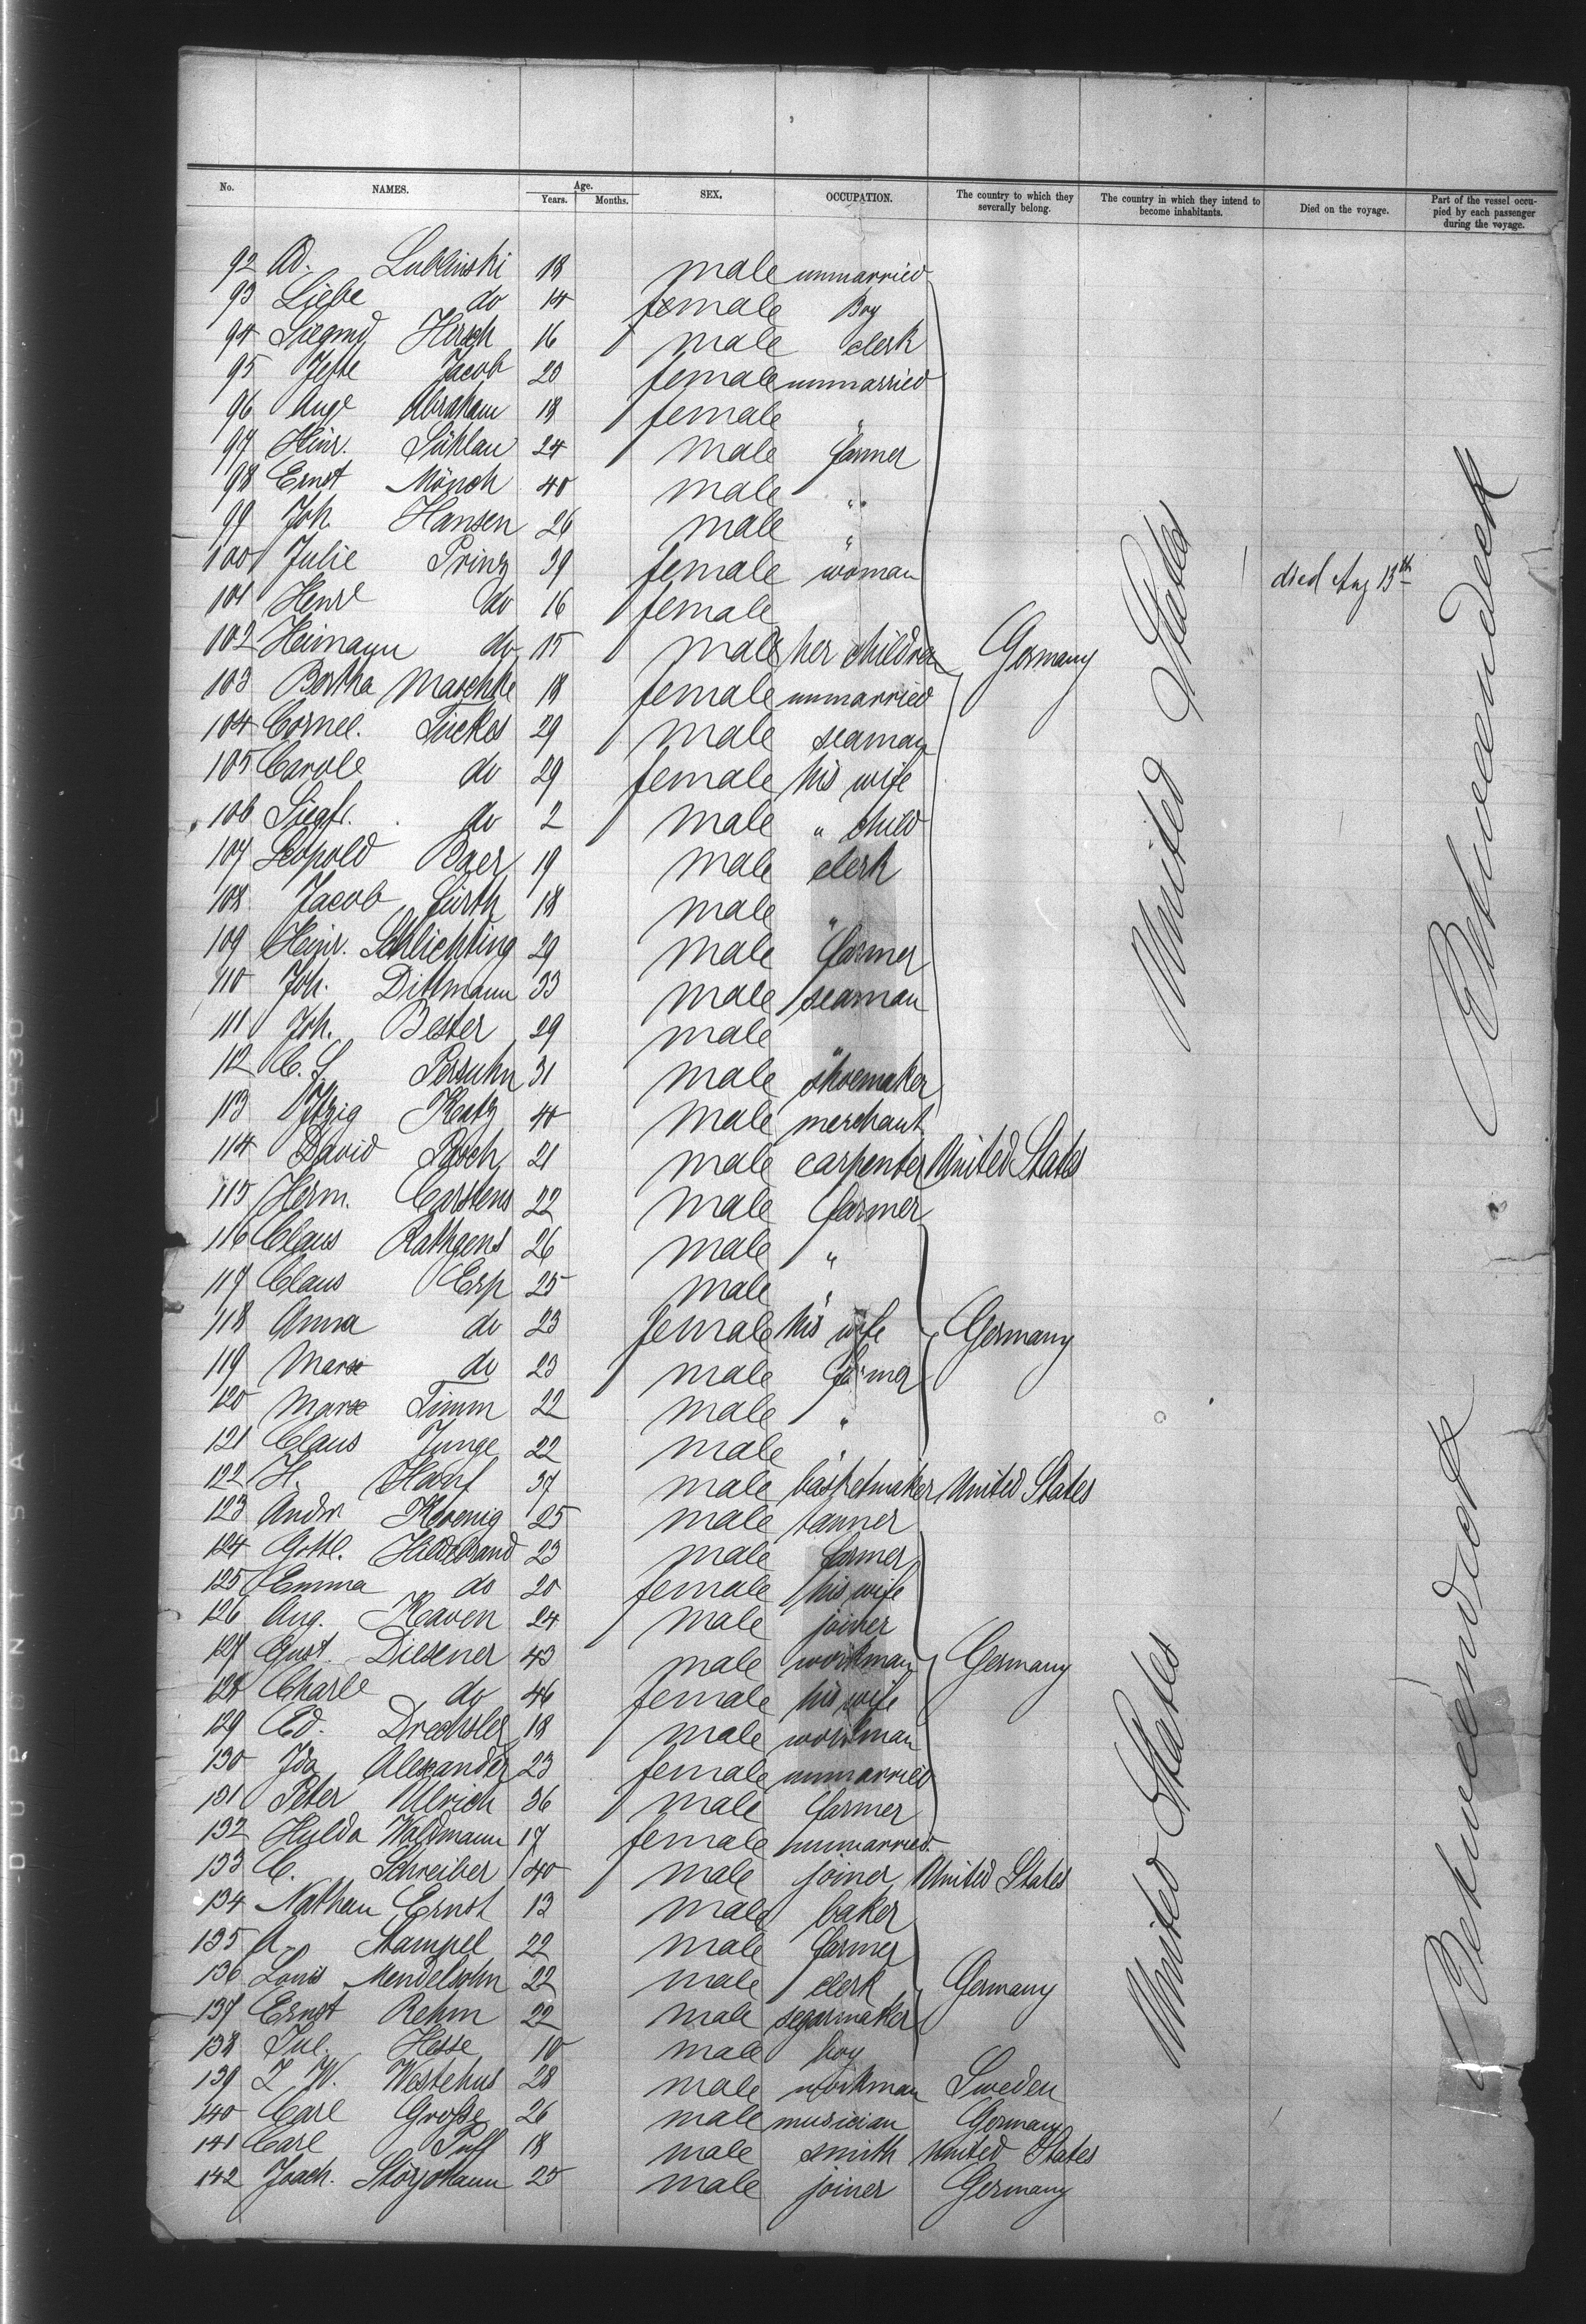 No. NAMES. Age. Years. Months. SEX. OCCUPATION. The country to which they severally belong. The country in which they intend to become inhabitants. Died on the voyage. Part of the vessel occupied by each passenger during the voyage.
92 Ad. Lublinski 18 male unmarried
93 Liebe do 14 female Boy
94 Siegmd Hirsch 16 male clerk
95 Jette Jacob 20 female unmarried
96 Aug Abraham 18 female "
97 Heinr. Sühlau 24 male farmer
98 Ernst Mönch 40 male "
99 Joh. Hansen 26 male "
100 Julie Prinz 39 female woman died Aug 13th
101 Henre do 16 female
102 Heimann do 15 male her children Germany
103 Bertha Maschke 18 female unmarried
104 Cornel. Tückes 29 male seaman
105 Carole do 29 female his wife
106 Siegfr. do 2 male " child
107 Leopold Baer 19 male clerk
108 Jacob Fürth 18 male "
109 Heinr. Schlichting 29 male farmer
110 Joh. Dittmann 33 male seaman
111 Joh. Bester 29 male "
112 C. Persuhn 31 male shoemaker
113 Itzig Katz 40 male merchant
114 David Posch 21 male carpenter United States
115 Herm. Carstens 22 male farmer
116 Claus Rathgens 26 male "
117 Claus Erp 25 male "
118 Anna do 23 female his wife Germany
119 Marx do 23 male farmer
120 Marx Timm 22 male "
121 Claus Junge 22 male "
122 H. Hanf 37 male basketmaker United States
123 Andr. Koenig 25 male tanner
124 Gottl. Hildebrand 23 male farmer
125 Emma do 20 female his wife
126 Aug. Kaven 24 male joiner
127 Gust. Diesener 43 male workman Germany
128 Charle do 46 female his wife
129 Ed. Drechsler 18 male workman
130 Ida Alexander 23 female unmarried
131 Peter Ulrich 36 male farmer
132 Hulda Waldmann 17 female unmarried
133 C. Schreiber 40 male joiner United States
134 Nathan Ernst 13 male baker
135 A. Stampel 22 male farmer
136 Louis Mendelsohn 22 male clerk Germany
137 Ernst Rehm 22 male segarmaker
138 Jul. Hesse 10 male boy
139 W. Westehus 28 male workman Sweden
140 Carl Große 26 male musician Germany
141 Carl Puff 18 male smith United States
142 Joach. Störjohann 25 male joiner Germany
United States
United States
Betweendeck
Betweendeck
DUPONT SAFETY 2930